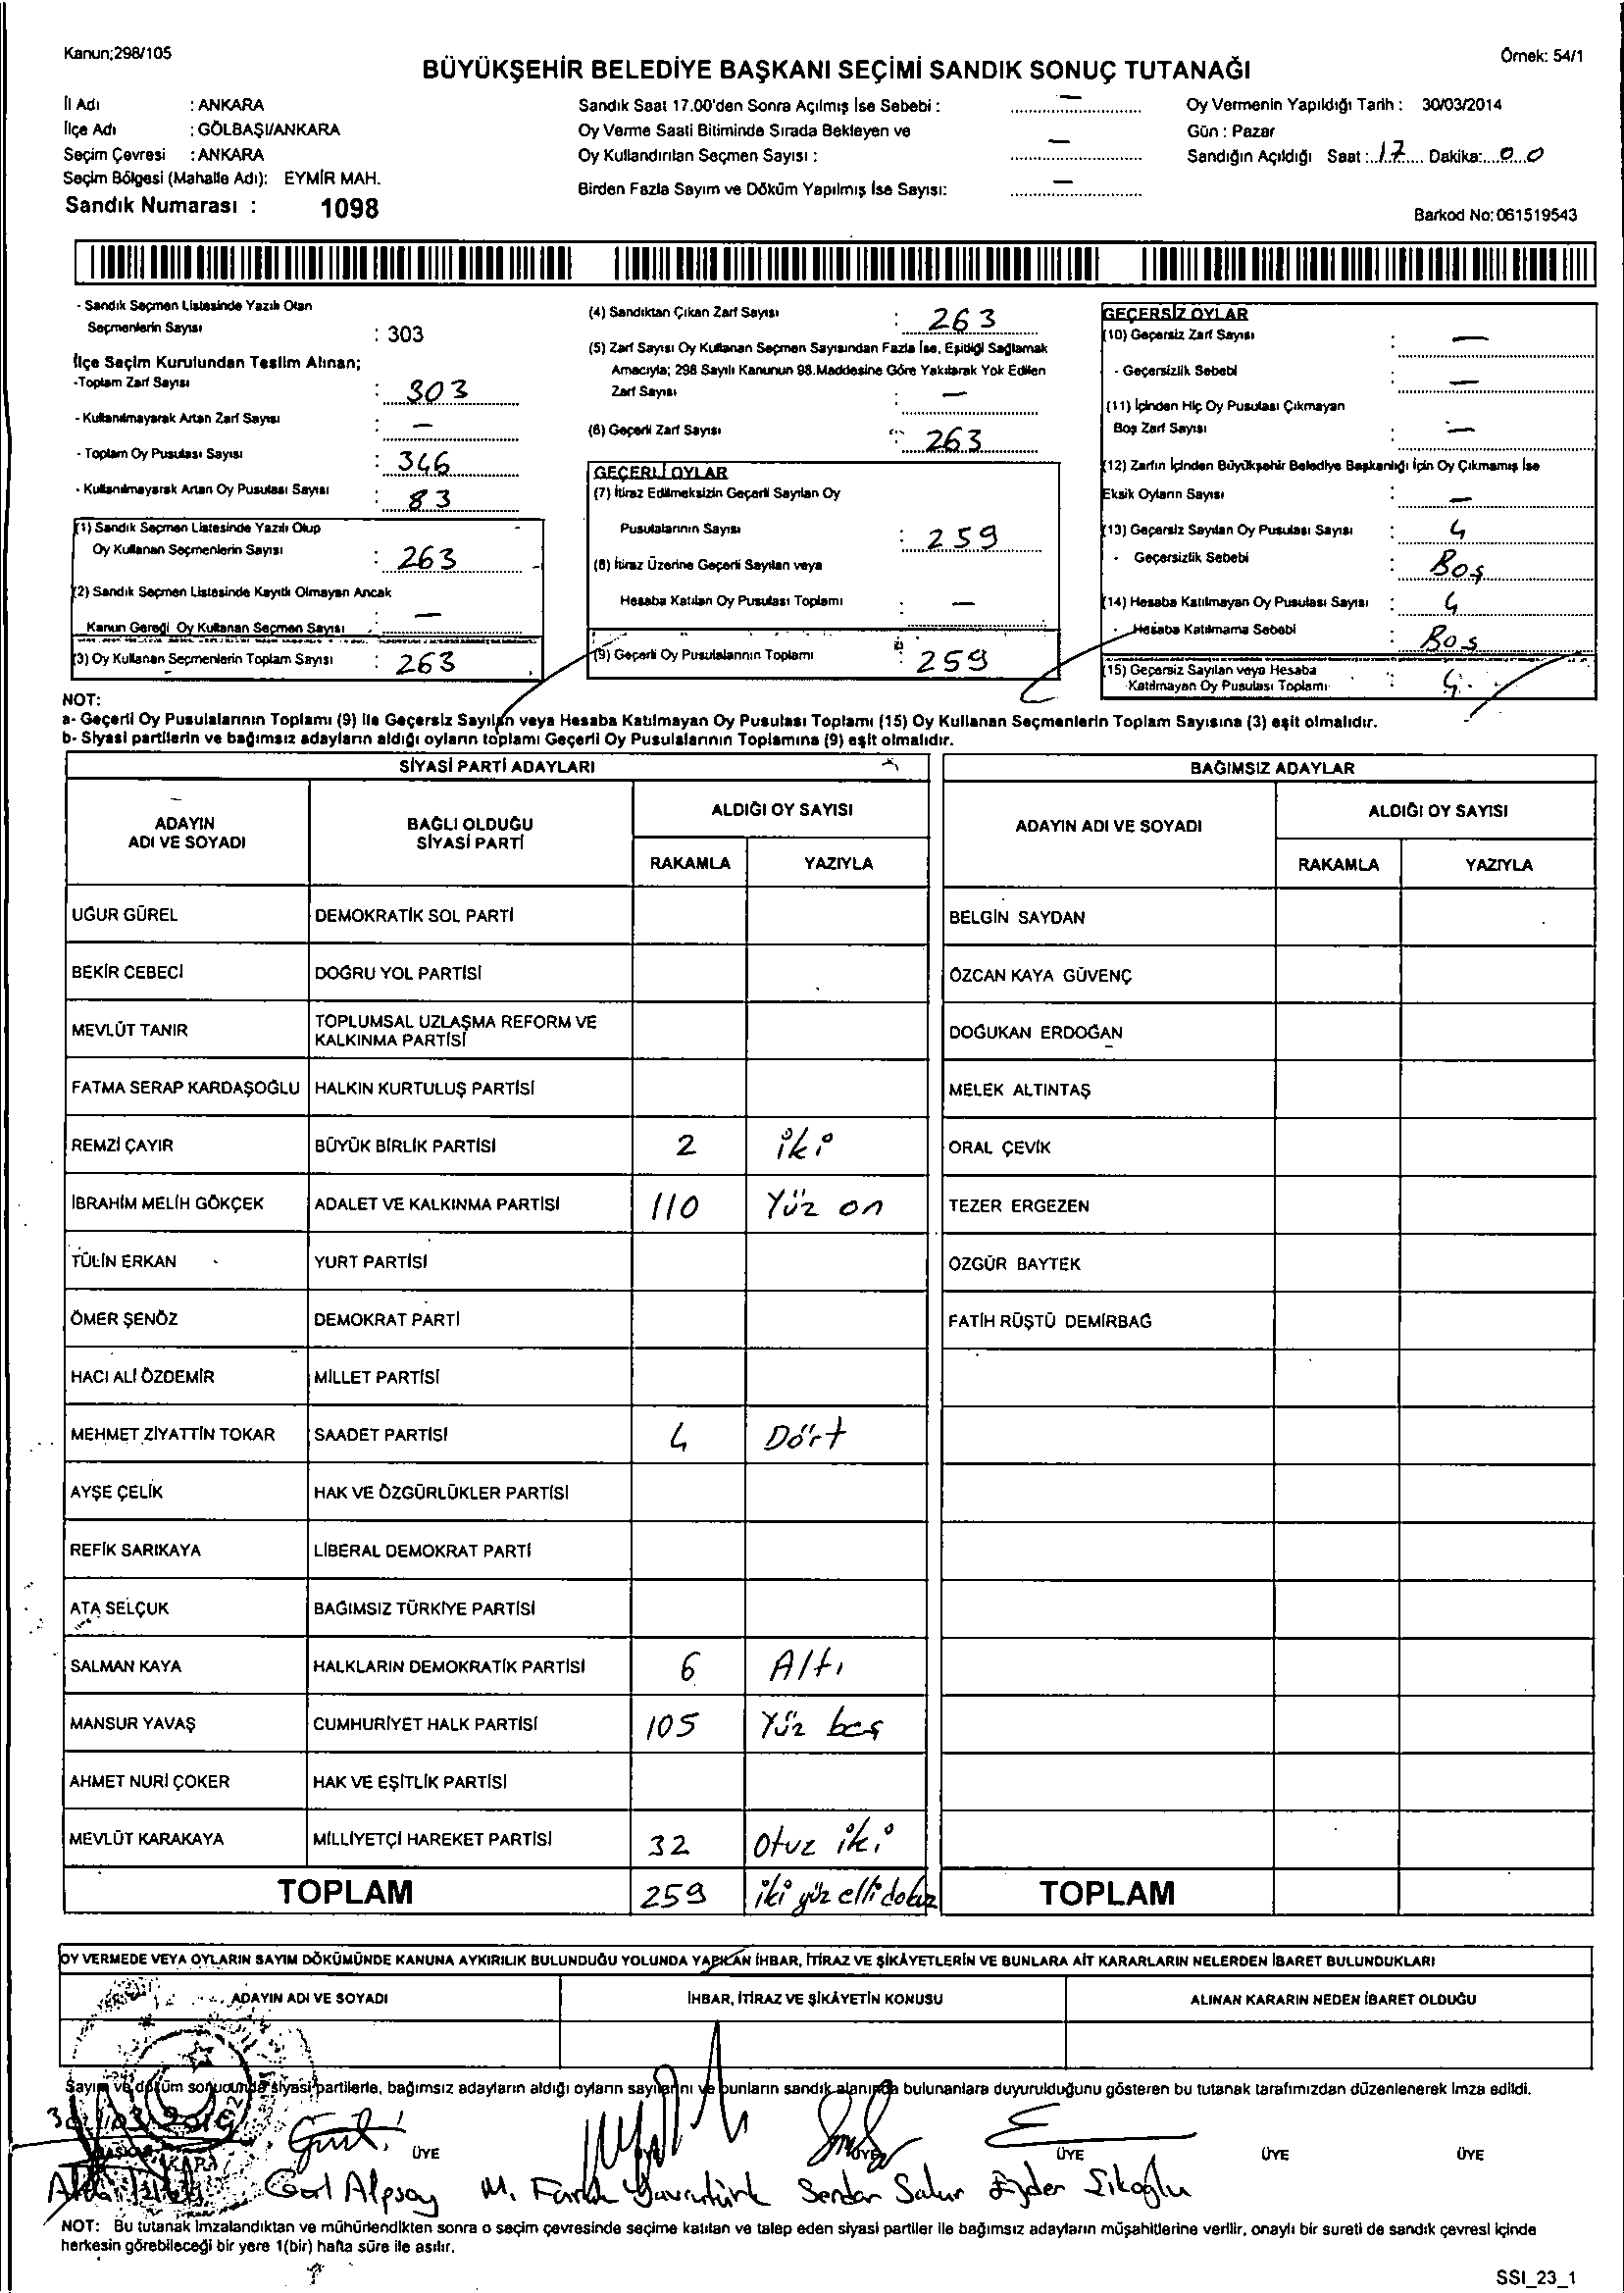 Kanun;298/105
Örnek: 54/1
BÜYÜKŞEHİR BELEDİYE BAŞKANI SEÇİMİ SANDIK SONUÇ TUTANAĞI
İl Adı : ANKARA
İlçe Adı : GÖLBAŞI/ANKARA
Seçim Çevresi : ANKARA
Seçim Bölgesi (Mahalle Adı): EYMİR MAH.
Sandık Numarası : 1098
Sandık Saat 17.00'den Sonra Açılmış İse Sebebi : —
Oy Verme Saati Bitiminde Sırada Bekleyen ve
Oy Kullandırılan Seçmen Sayısı : —
Birden Fazla Sayım ve Döküm Yapılmış İse Sayısı: —
Oy Vermenin Yapıldığı Tarih : 30/03/2014
Gün : Pazar
Sandığın Açıldığı Saat : 17 Dakika: 00
Barkod No: 061519543
- Sandık Seçmen Listesinde Yazılı Olan
Seçmenlerin Sayısı : 303
İlçe Seçim Kurulundan Teslim Alınan;
-Toplam Zarf Sayısı : 303
- Kullanılmayarak Artan Zarf Sayısı : —
- Toplam Oy Pusulası Sayısı : 346
- Kullanılmayarak Artan Oy Pusulası Sayısı : 83
(1) Sandık Seçmen Listesinde Yazılı Olup
Oy Kullanan Seçmenlerin Sayısı : 263
(2) Sandık Seçmen Listesinde Kayıtlı Olmayan Ancak
Kanun Gereği Oy Kullanan Seçmen Sayısı : —
(3) Oy Kullanan Seçmenlerin Toplam Sayısı : 263
(4) Sandıktan Çıkan Zarf Sayısı : 263
(5) Zarf Sayısı Oy Kullanan Seçmen Sayısından Fazla İse, Eşitliği Sağlamak
Amacıyla; 298 Sayılı Kanunun 98.Maddesine Göre Yakılarak Yok Edilen
Zarf Sayısı : —
(6) Geçerli Zarf Sayısı : 263
GEÇERLİ OYLAR
(7) İtiraz Edilmeksizin Geçerli Sayılan Oy
Pusulalarının Sayısı : 259
(8) İtiraz Üzerine Geçerli Sayılan veya
Hesaba Katılan Oy Pusulası Toplamı : —
(9) Geçerli Oy Pusulalarının Toplamı : 259
GEÇERSİZ OYLAR
(10) Geçersiz Zarf Sayısı : —
- Geçersizlik Sebebi : —
(11) İçinden Hiç Oy Pusulası Çıkmayan
Boş Zarf Sayısı : —
(12) Zarfın İçinden Büyükşehir Belediye Başkanlığı İçin Oy Çıkmamış İse
Eksik Oyların Sayısı : —
(13) Geçersiz Sayılan Oy Pusulası Sayısı : 4
- Geçersizlik Sebebi : Boş
(14) Hesaba Katılmayan Oy Pusulası Sayısı : 4
- Hesaba Katılmama Sebebi : Boş
(15) Geçersiz Sayılan veya Hesaba
Katılmayan Oy Pusulası Toplamı : 4
NOT:
a- Geçerli Oy Pusulalarının Toplamı (9) ile Geçersiz Sayılan veya Hesaba Katılmayan Oy Pusulası Toplamı (15) Oy Kullanan Seçmenlerin Toplam Sayısına (3) eşit olmalıdır.
b- Siyasi partilerin ve bağımsız adayların aldığı oyların toplamı Geçerli Oy Pusulalarının Toplamına (9) eşit olmalıdır.
SİYASİ PARTİ ADAYLARI
BAĞIMSIZ ADAYLAR
ADAYIN ADI VE SOYADI
BAĞLI OLDUĞU SİYASİ PARTİ
ALDIĞI OY SAYISI
RAKAMLA YAZIYLA
ADAYIN ADI VE SOYADI
ALDIĞI OY SAYISI
RAKAMLA YAZIYLA
UĞUR GÜREL DEMOKRATİK SOL PARTİ BELGİN SAYDAN
BEKİR CEBECİ DOĞRU YOL PARTİSİ ÖZCAN KAYA GÜVENÇ
MEVLÜT TANIR TOPLUMSAL UZLAŞMA REFORM VE KALKINMA PARTİSİ DOĞUKAN ERDOĞAN
FATMA SERAP KARDAŞOĞLU HALKIN KURTULUŞ PARTİSİ MELEK ALTINTAŞ
REMZİ ÇAYIR BÜYÜK BİRLİK PARTİSİ 2 iki ORAL ÇEVİK
İBRAHİM MELİH GÖKÇEK ADALET VE KALKINMA PARTİSİ 110 Yüz on TEZER ERGEZEN
TÜLİN ERKAN YURT PARTİSİ ÖZGÜR BAYTEK
ÖMER ŞENÖZ DEMOKRAT PARTİ FATİH RÜŞTÜ DEMİRBAĞ
HACI ALİ ÖZDEMİR MİLLET PARTİSİ
MEHMET ZİYATTİN TOKAR SAADET PARTİSİ 4 Dört
AYŞE ÇELİK HAK VE ÖZGÜRLÜKLER PARTİSİ
REFİK SARIKAYA LİBERAL DEMOKRAT PARTİ
ATA SELÇUK BAĞIMSIZ TÜRKİYE PARTİSİ
SALMAN KAYA HALKLARIN DEMOKRATİK PARTİSİ 6 Altı
MANSUR YAVAŞ CUMHURİYET HALK PARTİSİ 105 Yüz beş
AHMET NURİ ÇOKER HAK VE EŞİTLİK PARTİSİ
MEVLÜT KARAKAYA MİLLİYETÇİ HAREKET PARTİSİ 32 Otuz iki
TOPLAM 259 iki yüz elli dokuz TOPLAM
OY VERMEDE VEYA OYLARIN SAYIM DÖKÜMÜNDE KANUNA AYKIRILIK BULUNDUĞU YOLUNDA YAPILAN İHBAR, İTİRAZ VE ŞİKÂYETLERİN VE BUNLARA AİT KARARLARIN NELERDEN İBARET BULUNDUKLARI
ADAYIN ADI VE SOYADI İHBAR, İTİRAZ VE ŞİKÂYETİN KONUSU ALINAN KARARIN NEDEN İBARET OLDUĞU
Sayım ve döküm sonucunda siyasi partilerle, bağımsız adayların aldığı oyların sayılarını ve bunların sandık alanında bulunanlara duyurulduğunu gösteren bu tutanak tarafımızdan düzenlenerek imza edildi.
30/03/2014
BAŞKAN ÜYE ÜYE ÜYE ÜYE ÜYE
Alpsoy M. Faruk Serdar
NOT: Bu tutanak imzalandıktan ve mühürlendikten sonra o seçim çevresinde seçime katılan ve talep eden siyasi partiler ile bağımsız adayların müşahitlerine verilir, onaylı bir sureti de sandık çevresi içinde
herkesin görebileceği bir yere 1(bir) hafta süre ile asılır.
SSI_23_1